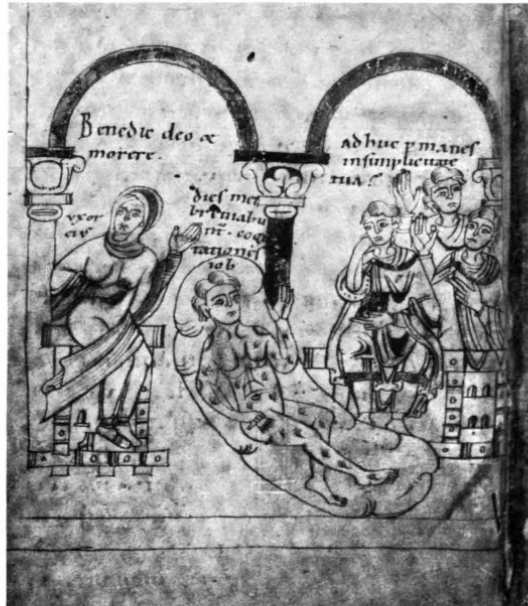 Benedic deo &
morere.
uxor
eius
dies mei
cog
tationes
iob
Adhuc p manes
in simplicitate
tua?